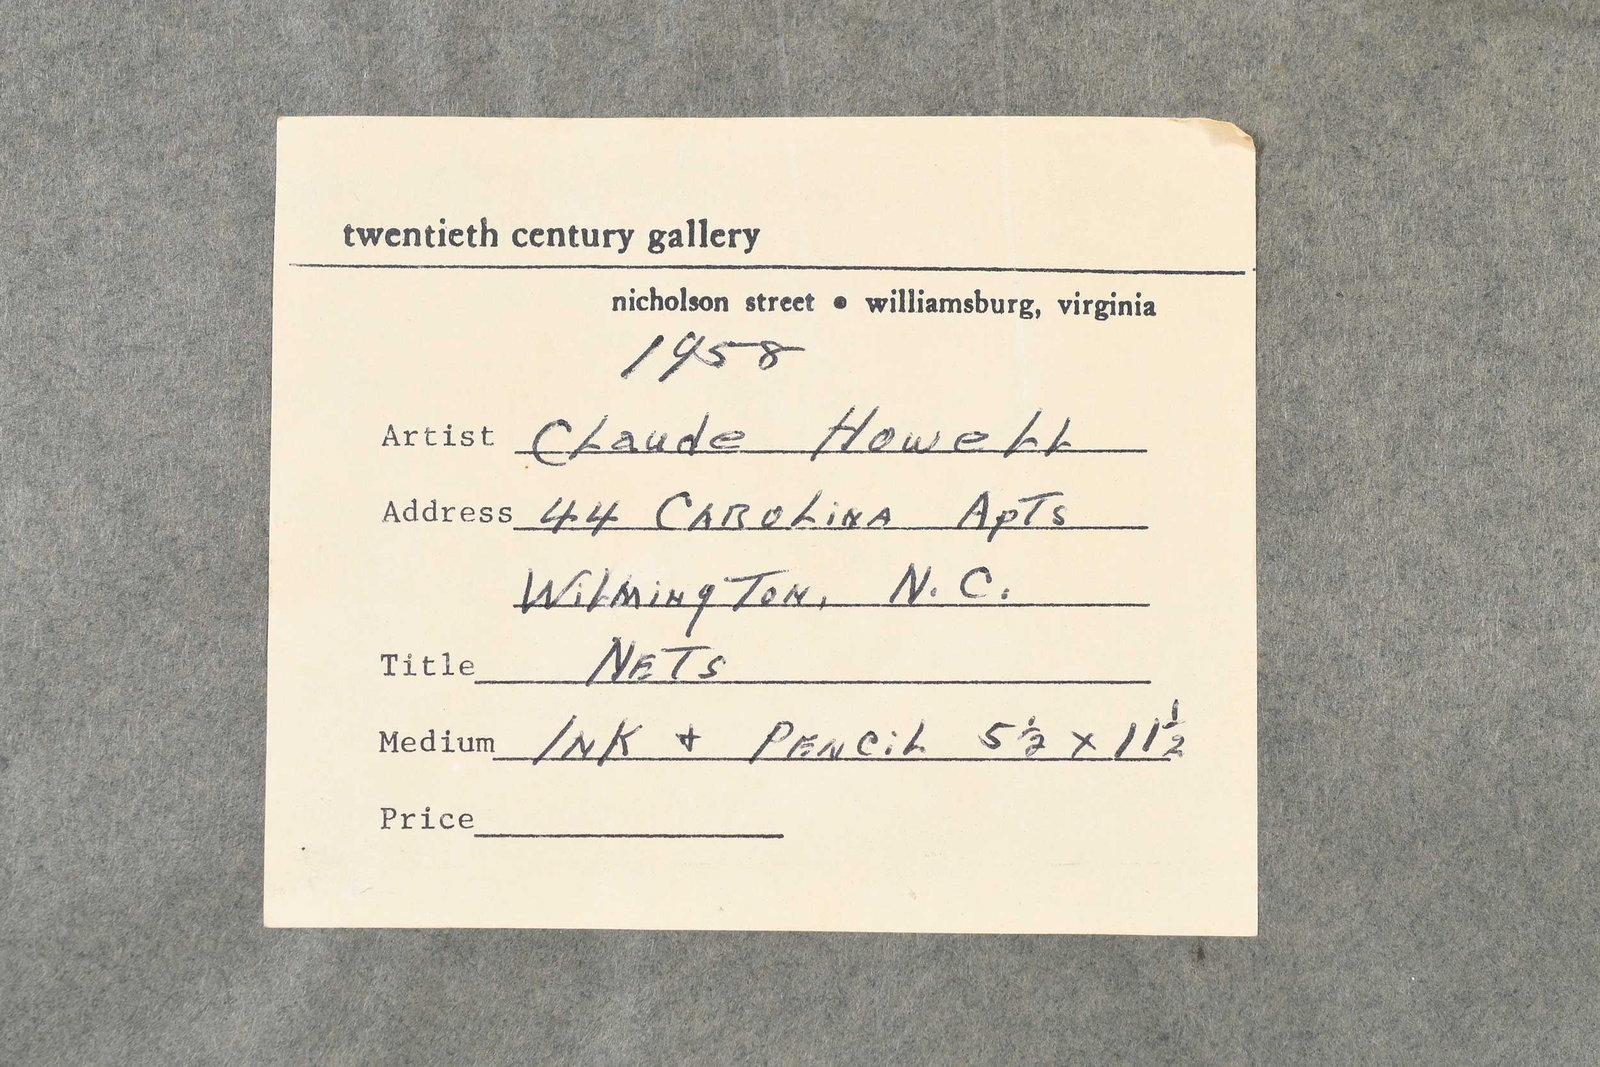 twentieth century gallery
nicholson street • williamsburg, virginia
1958
Artist Claude Howell
Address 44 CAROLINA ApTs
WilmingTon, N.C.
Title NETS
Medium INK + PENCIL 5½ x 11½
Price